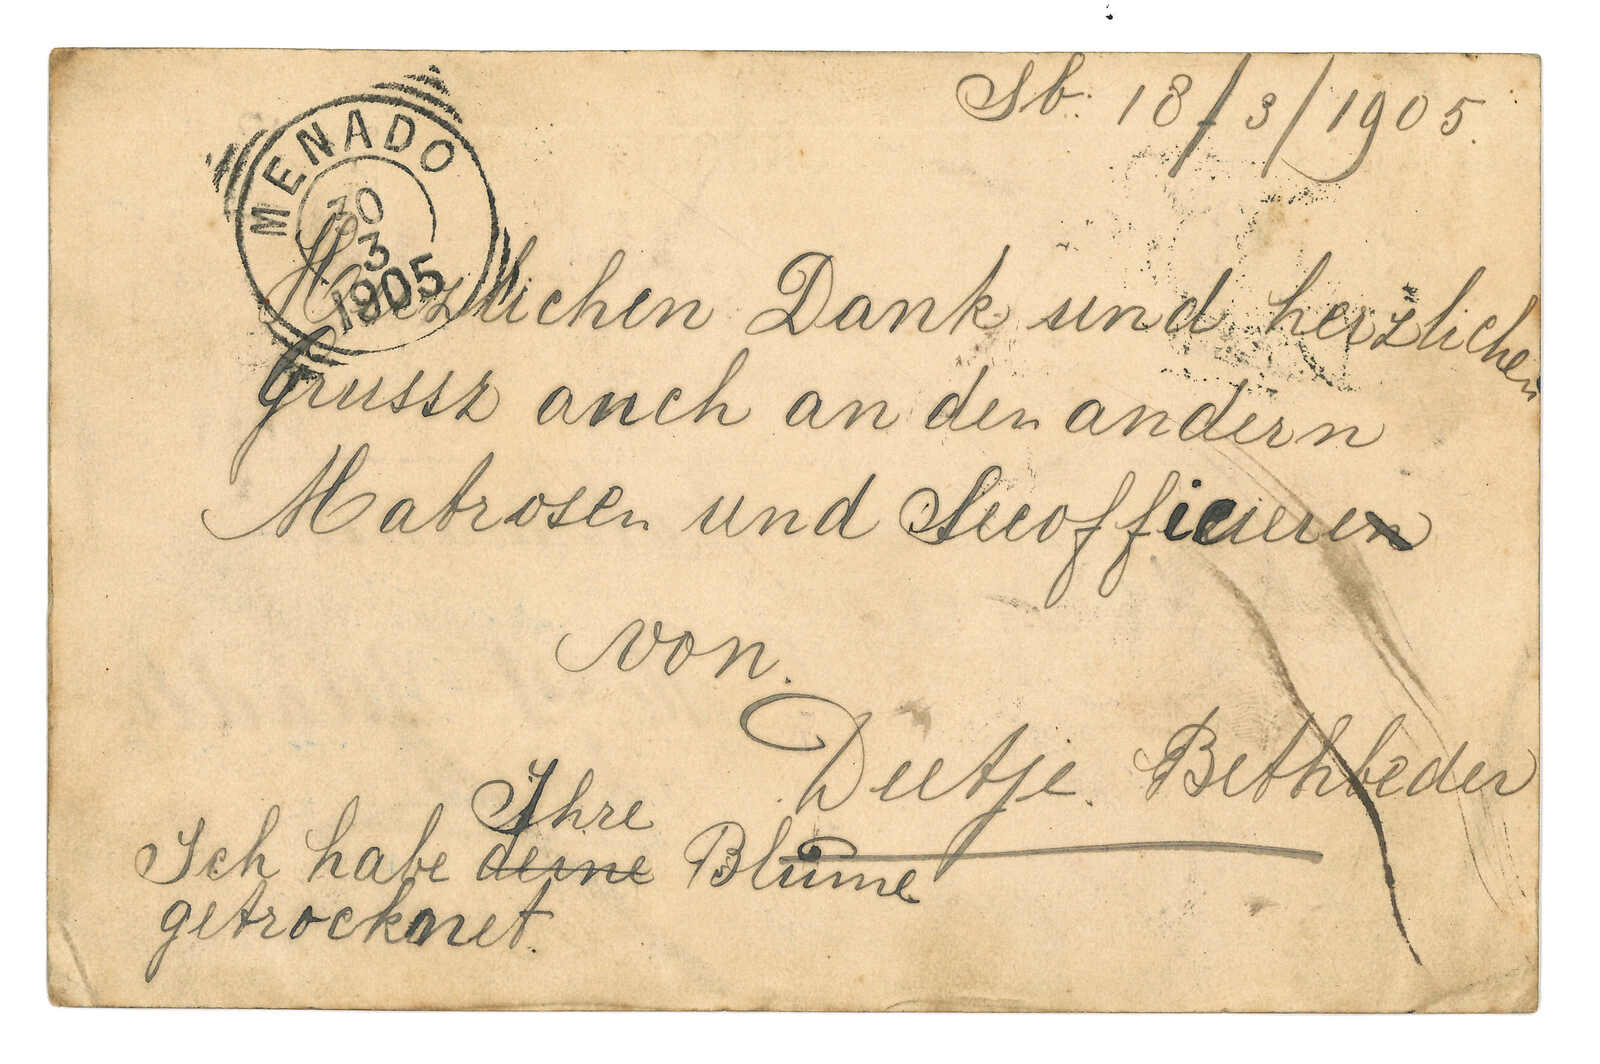 Sb. 18/3/1905.
MENADO
30
3
1905
Herzlichen Dank und herzlichen
Grussz auch an den andern
Matrosen und Seeofficieren
von.
Deetje Bethbeder
Ihre
Ich habe deine Blume
getrocknet.